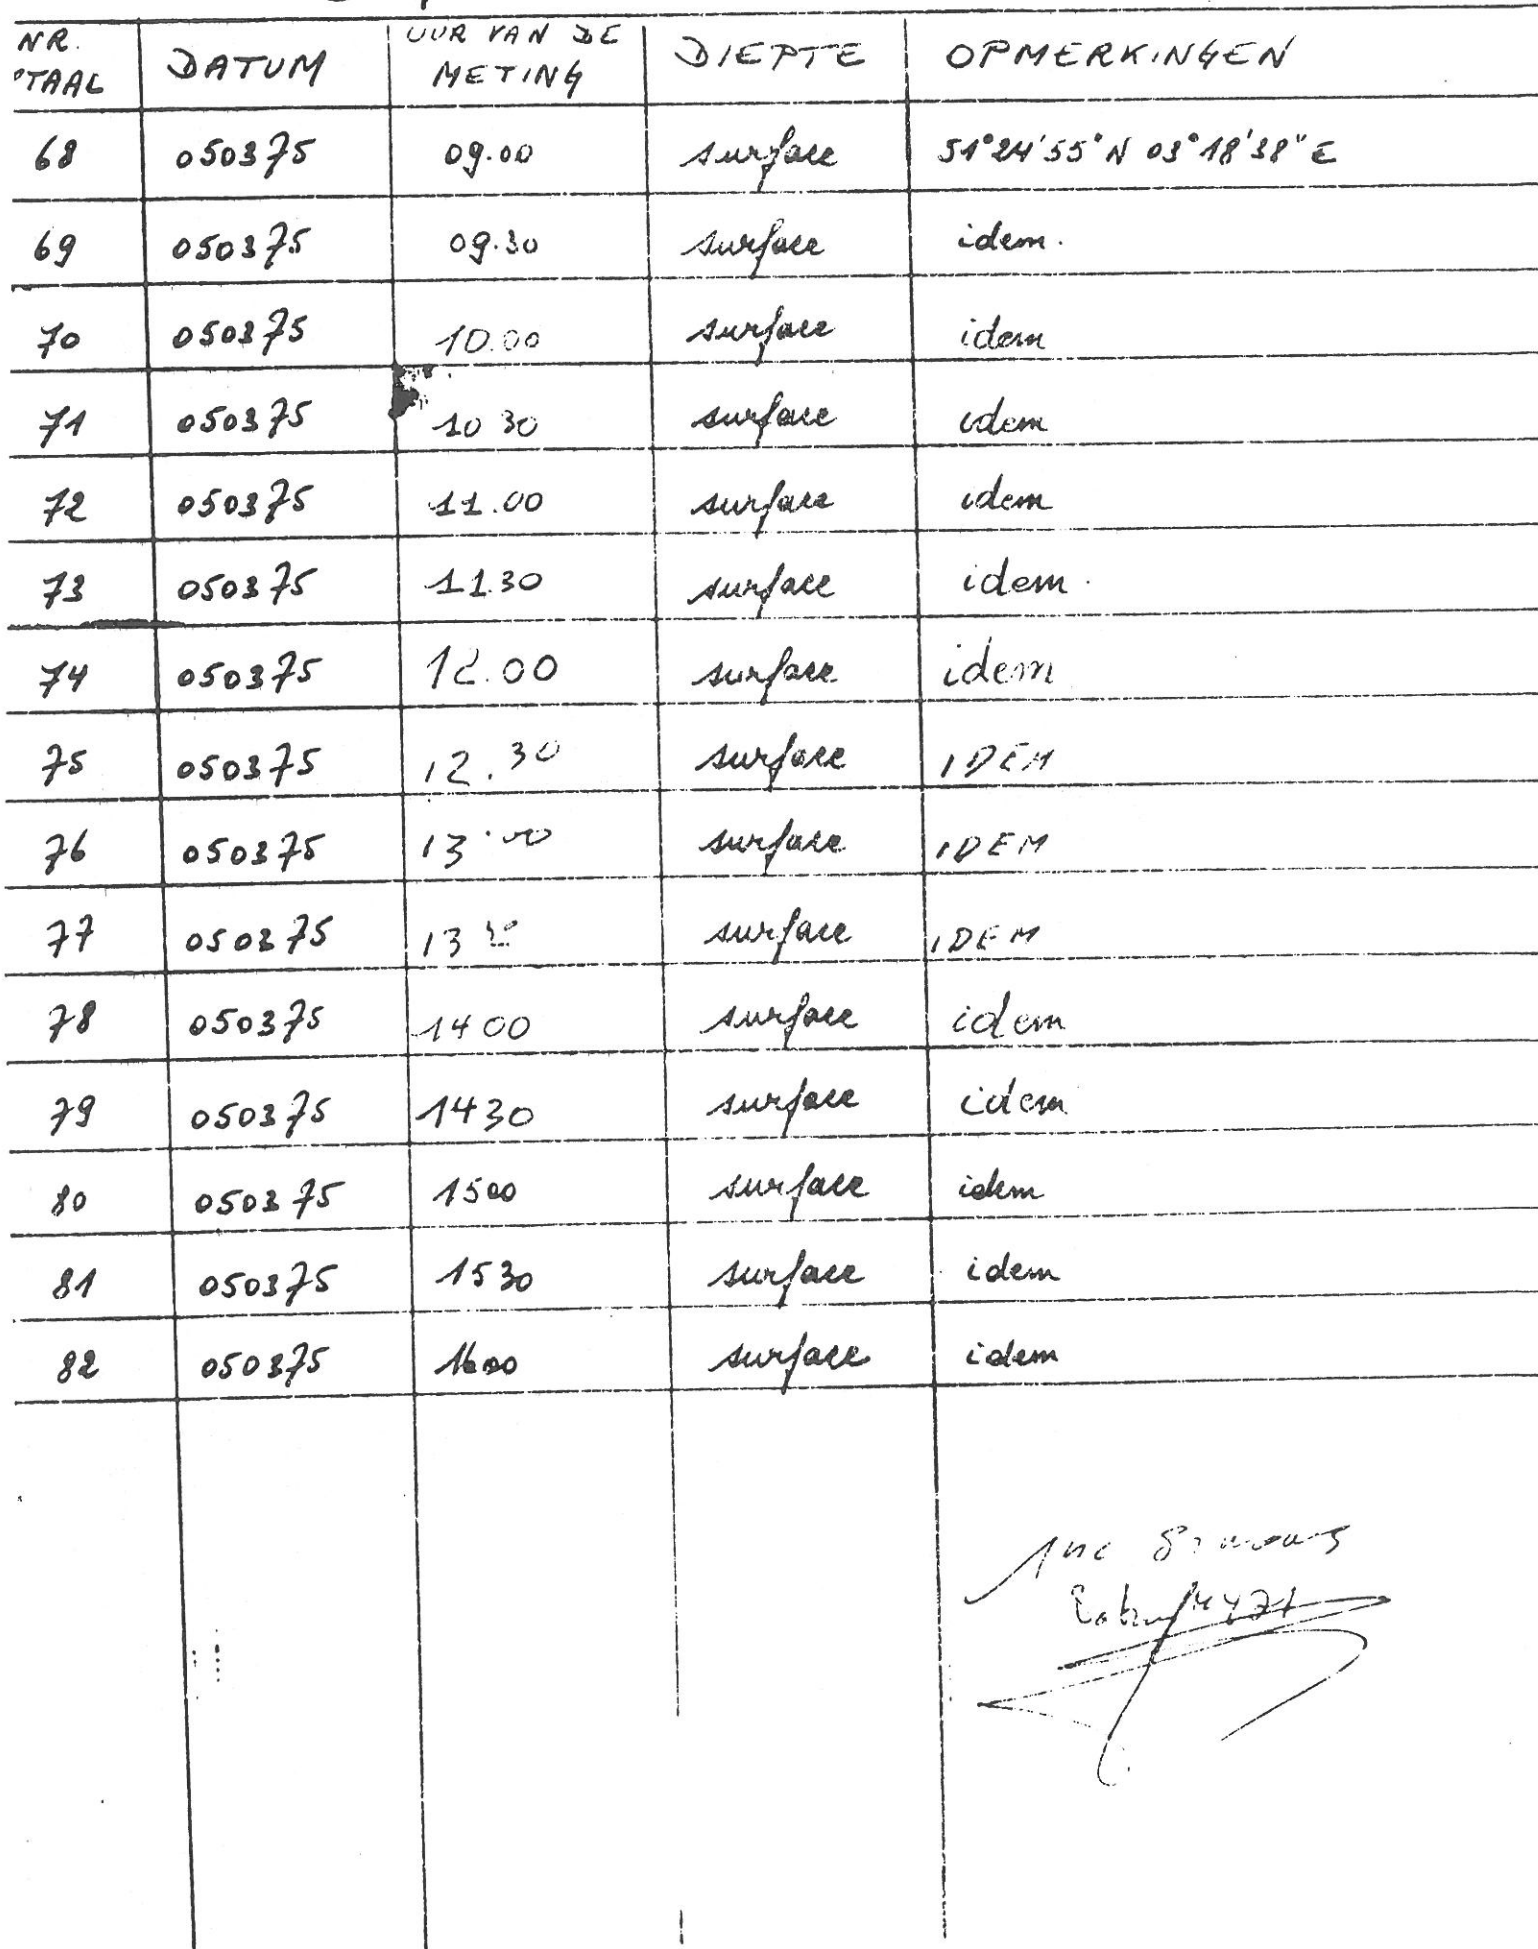 NR. DATUM UUR VAN DE DIEPTE OPMERKINGEN
TAAL METING
68 050375 09.00 surface 51°24'55"N 03°18'38"E
69 050375 09.30 surface idem.
70 050375 10.00 surface idem
71 050375 10 30 surface idem
72 050375 11.00 surface idem
73 050375 11.30 surface idem.
74 050375 12.00 surface idem
75 050375 12.30 surface IDEM
76 050375 13.00 surface IDEM
77 050375 13 30 surface IDEM
78 050375 1400 surface idem
79 050375 1430 surface idem
80 050375 1500 surface idem
81 050375 1530 surface idem
82 050375 1600 surface idem